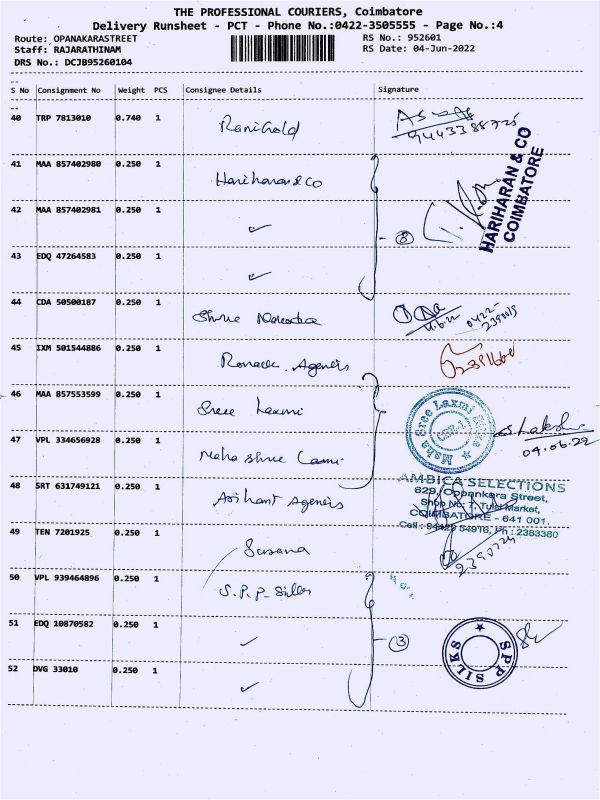 THE PROFESSIONAL COURIERS, Coimbatore
Delivery Runsheet - PCT - Phone No.:0422-3505555 - Page No.:4
Route: OPANAKARASTREET RS No.: 952601
Staff: RAJARATHINAM RS Date: 04-Jun-2022
DRS No.: DCJB95260104
S No Consignment No Weight PCS Consignee Details Signature
40 TRP 7813010 0.740 1 Ranigold
41 MAA 857402980 0.250 1 Hariharan & Co
HARIHARAN & CO
COIMBATORE
42 MAA 857402981 0.250 1 ✓
3
43 EDQ 47264583 0.250 1 ✓
44 CDA 50500187 0.250 1 Shree
0422-
45 IXM 501544886 0.250 1 Agencies
46 MAA 857553599 0.250 1 Sree Laxmi
Maha Sree Laxmi
47 VPL 334656928 0.250 1 Maha Shree
04.06.22
48 SRT 631749121 0.250 1 Arihant Agencies
AMBICA SELECTIONS
629, Oppankara Street,
Shop No: 7, Tulsi Market,
COIMBATORE - 641 001.
Cell : 94429 54916, Ph : 2383380
49 TEN 7201925 0.250 1
50 VPL 939464896 0.250 1 S.P.P. Silks
51 EDQ 10870582 0.250 1 ✓
3
SPP SILKS
52 DVG 33010 0.250 1 ✓